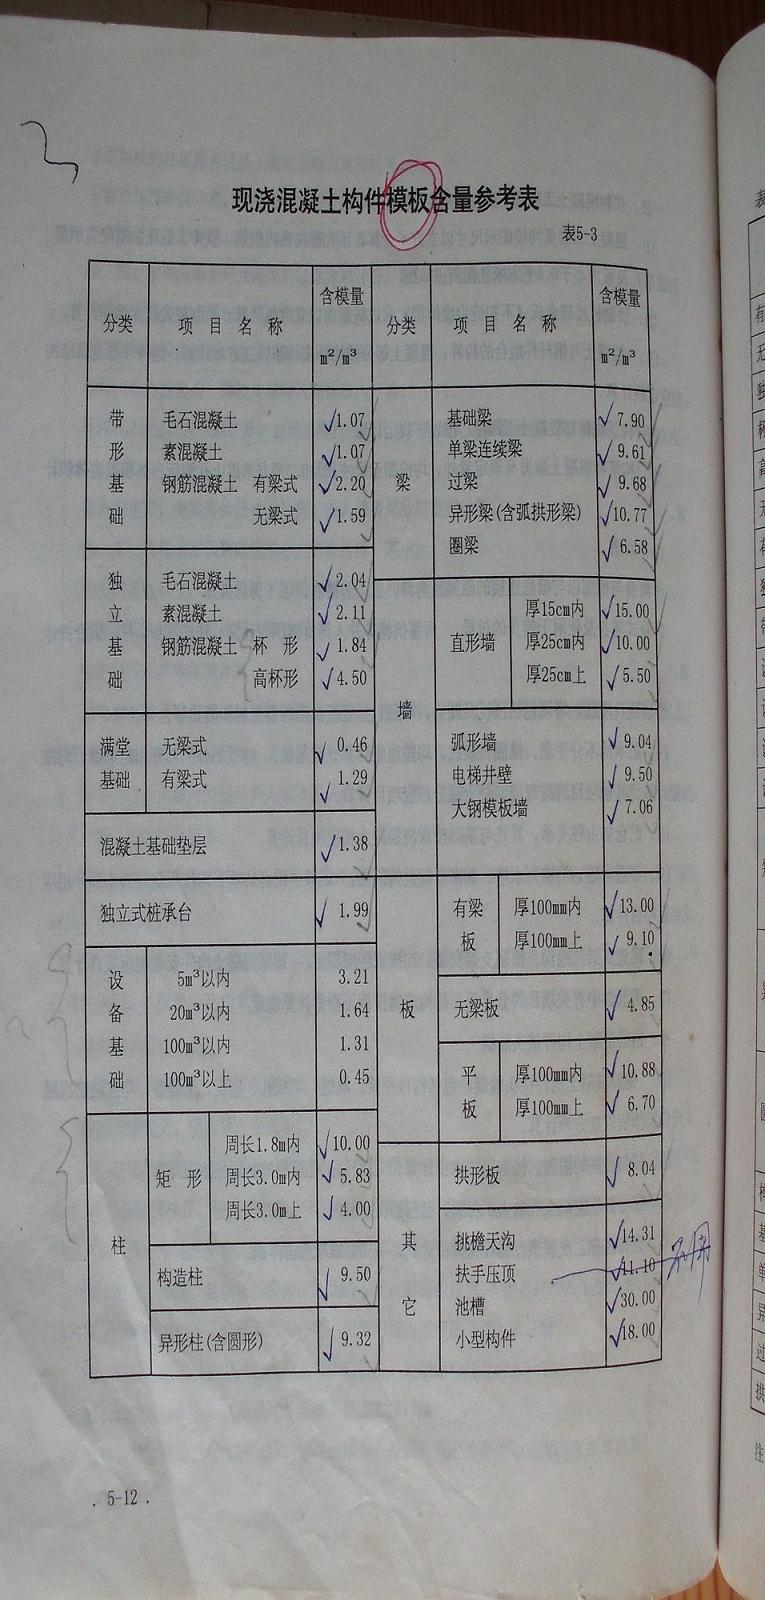 现浇混凝土构件模板含量参考表
表5-3
分类 项目名称 含模量 m²/m³ 分类 项目名称 含模量 m²/m³
带形基础
毛石混凝土 1.07
素混凝土 1.07
钢筋混凝土 有梁式 2.20
无梁式 1.59
独立基础
毛石混凝土 2.04
素混凝土 2.11
钢筋混凝土 杯形 1.84
高杯形 4.50
满堂基础
无梁式 0.46
有梁式 1.29
混凝土基础垫层 1.38
独立式桩承台 1.99
设备基础
5m³以内 3.21
20m³以内 1.64
100m³以内 1.31
100m³以上 0.45
柱
矩形
周长1.8m内 10.00
周长3.0m内 5.83
周长3.0m上 4.00
构造柱 9.50
异形柱(含圆形) 9.32
梁
基础梁 7.90
单梁连续梁 9.61
过梁 9.68
异形梁(含弧拱形梁) 10.77
圈梁 6.58
墙
直形墙
厚15cm内 15.00
厚25cm内 10.00
厚25cm上 5.50
弧形墙 9.04
电梯井壁 9.50
大钢模板墙 7.06
板
有梁板
厚100mm内 13.00
厚100mm上 9.10
无梁板 4.85
平板
厚100mm内 10.88
厚100mm上 6.70
其它
拱形板 8.04
挑檐天沟 14.31
扶手压顶 11.10 不用
池槽 30.00
小型构件 18.00
. 5-12 .